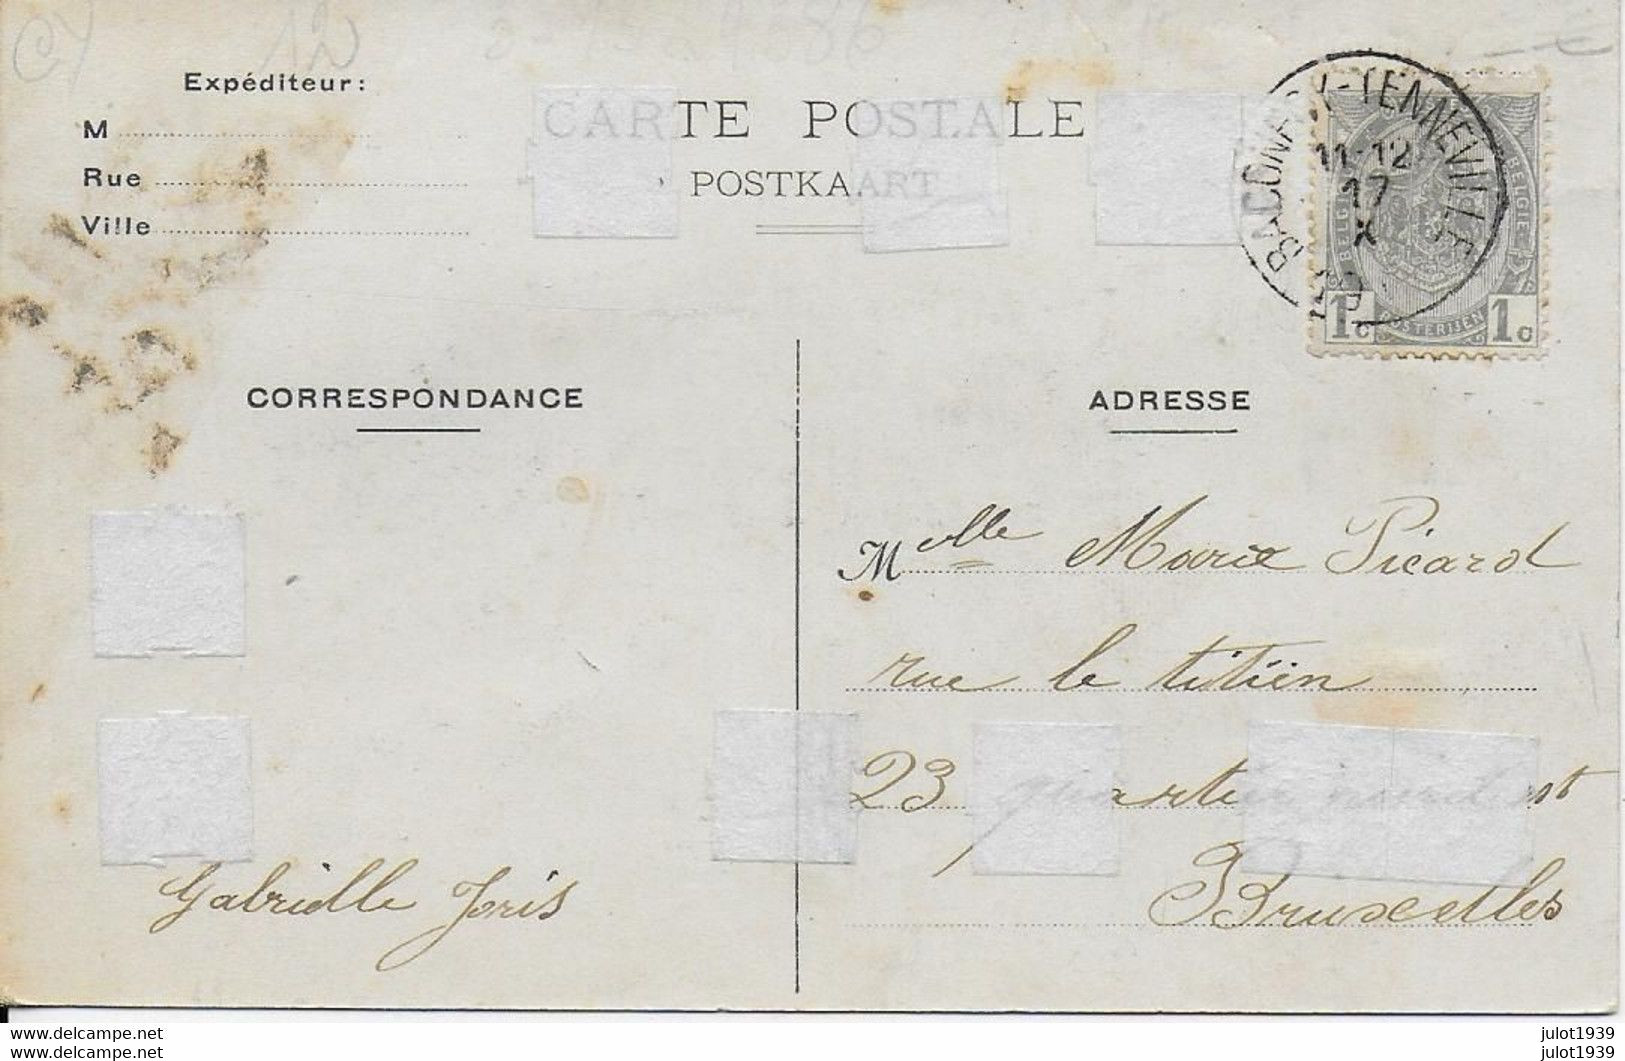 12
Expéditeur:
M
Rue
Ville
CARTE POSTALE
POSTKAART
TENNEVILLE
11-12
17
X
BELGIQUE
BELGIE
1c POSTERIJEN 1c
CORRESPONDANCE
ADRESSE
Melle Marie Picard
rue le titien
23, quartier nord est
Bruxelles
Gabrielle Joris
www.delcampe.net
www.delcampe.net
julot1939
julot1939